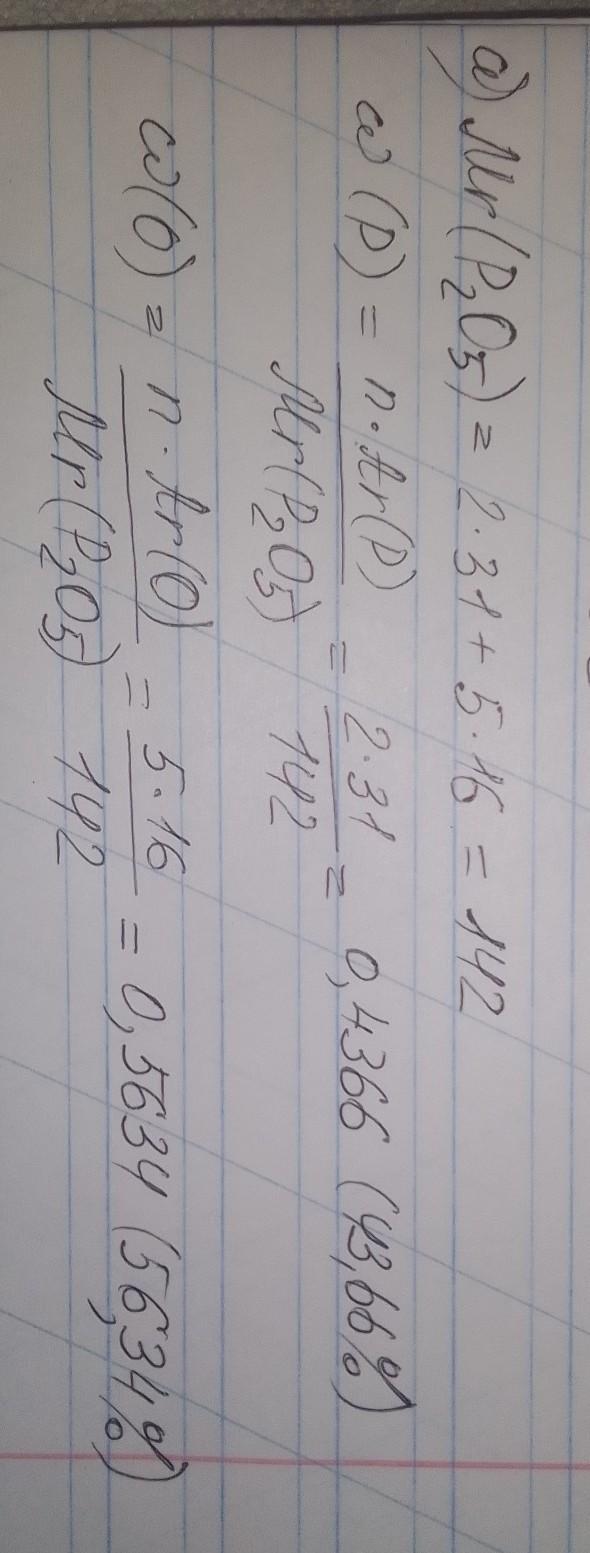 a) Mr(P₂O₅) = 2·31 + 5·16 = 142
ω(P) = n·Ar(P) / Mr(P₂O₅) = 2·31 / 142 = 0,4366 (43,66%)
ω(O) = n·Ar(O) / Mr(P₂O₅) = 5·16 / 142 = 0,5634 (56,34%)